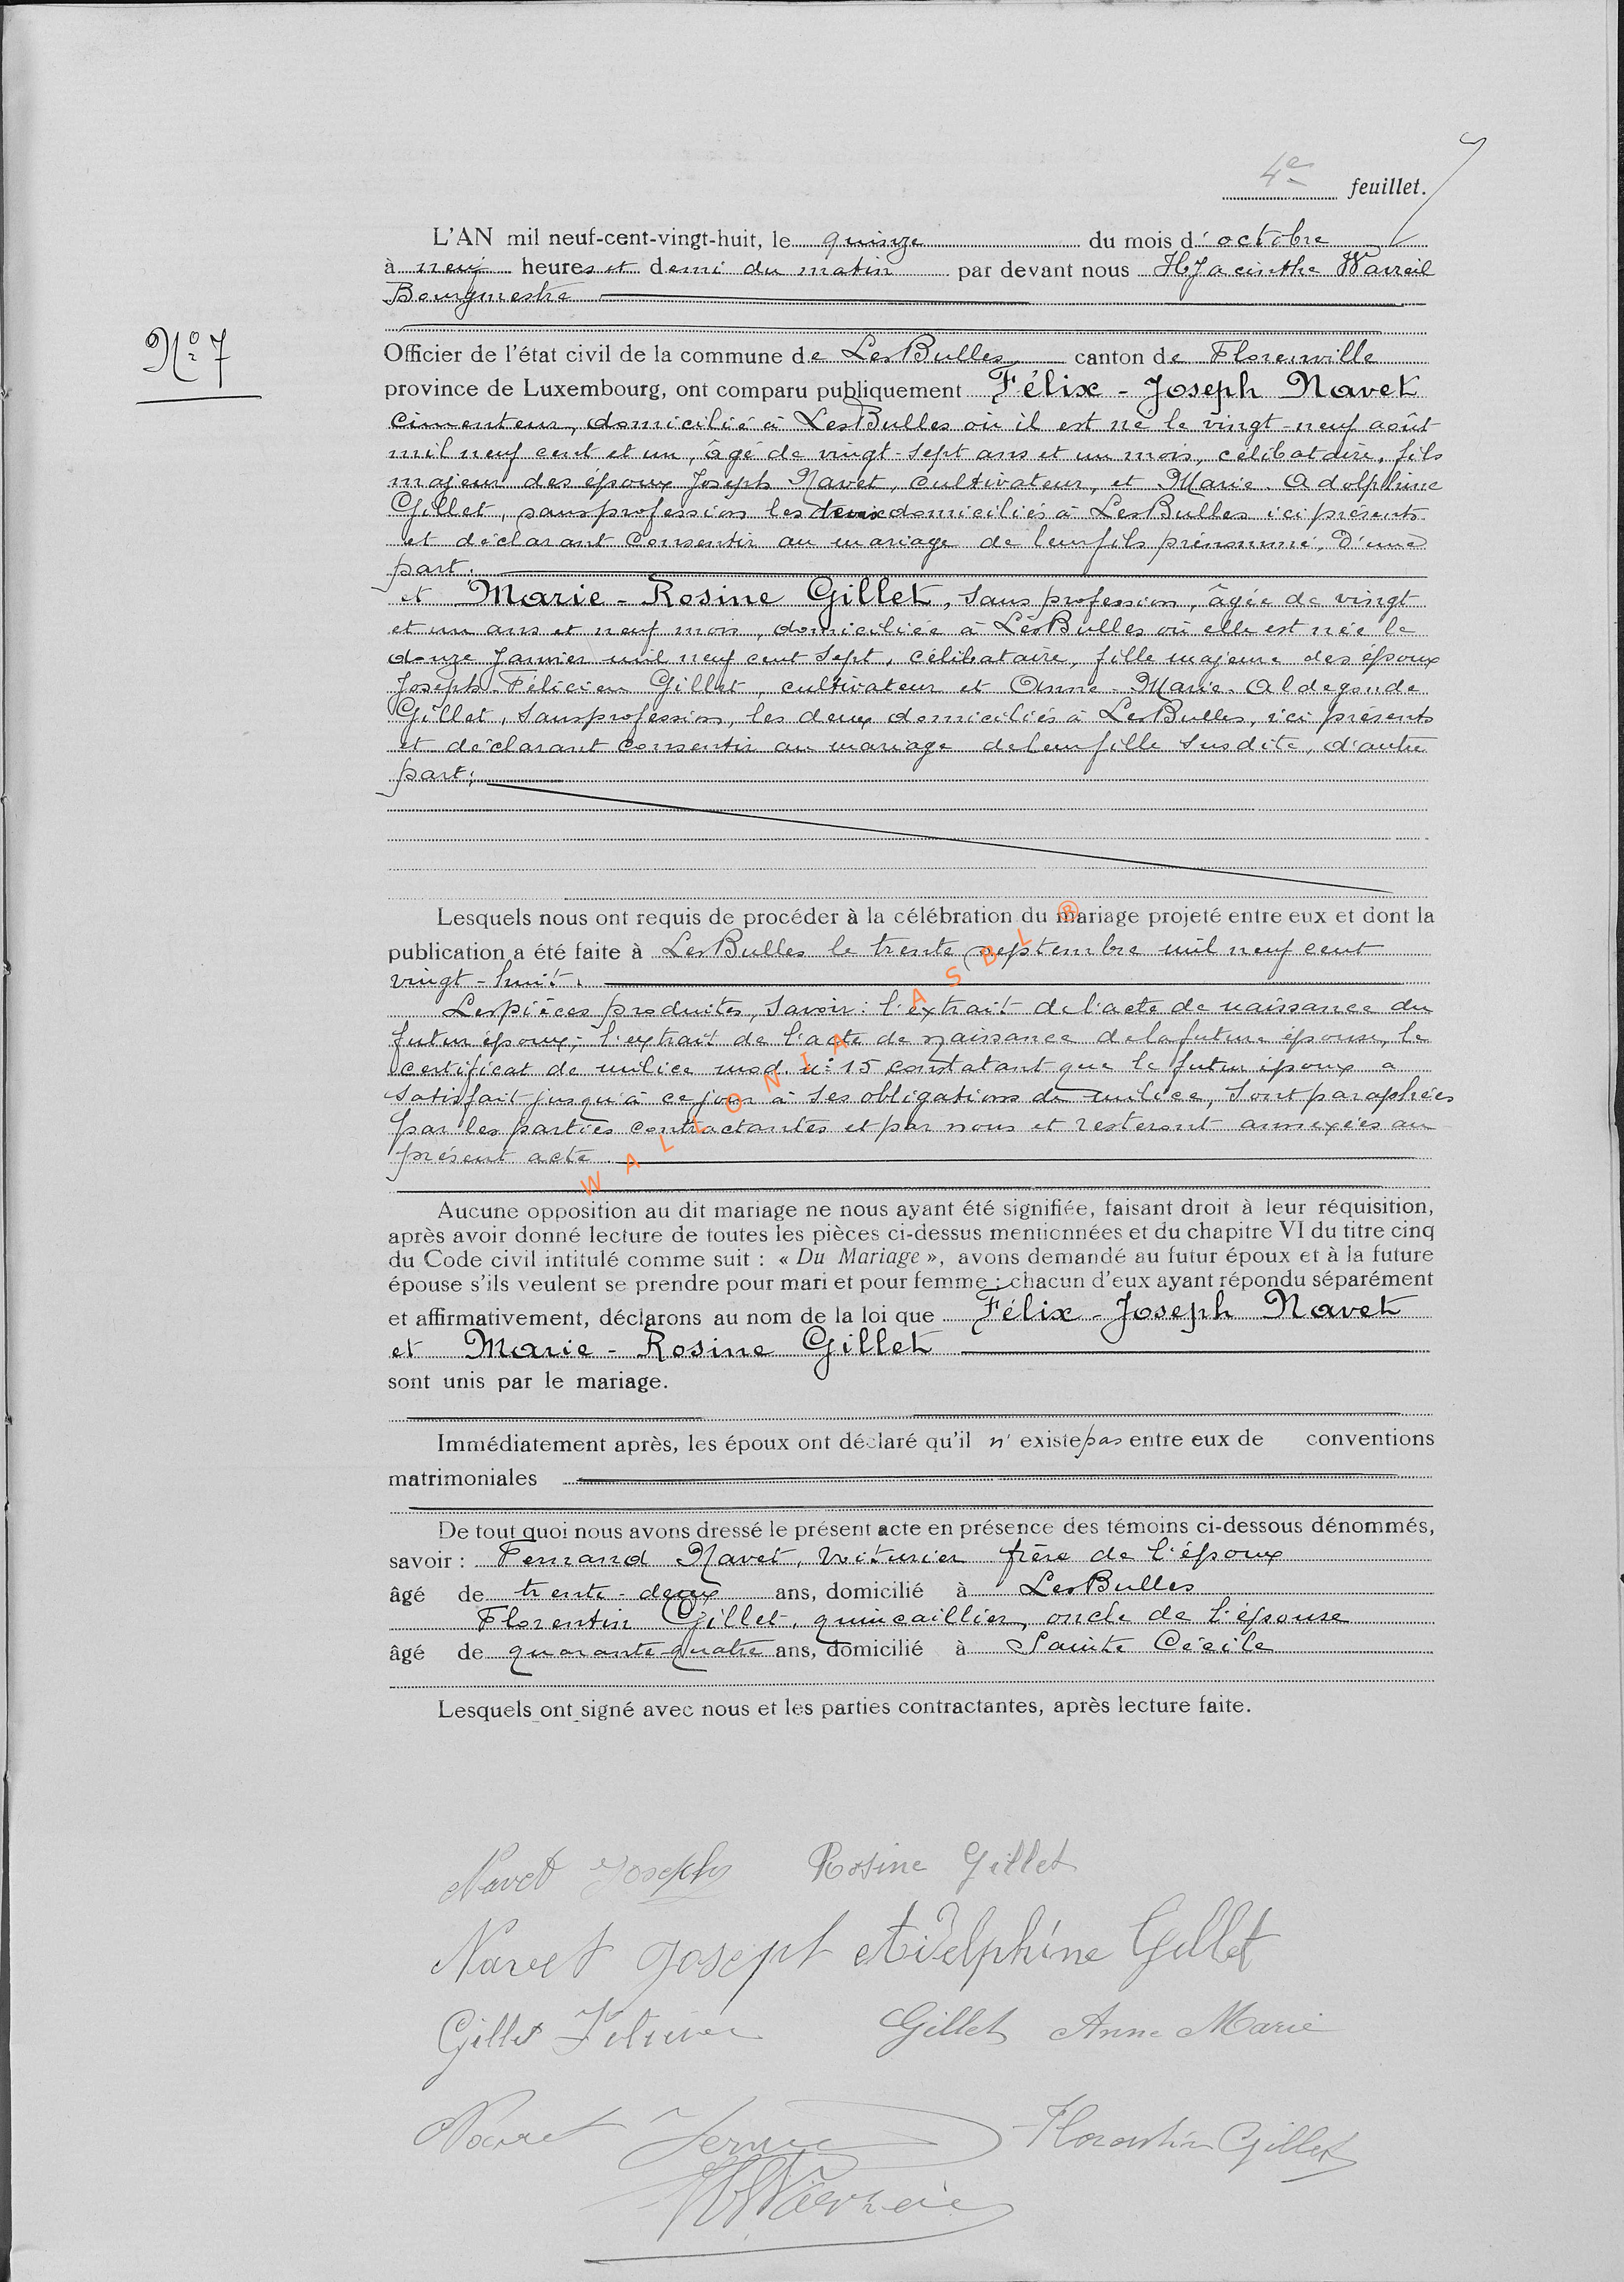 4e feuillet.
L'AN mil neuf-cent-vingt-huit, le quinze du mois d'octobre
à neuf heures et demi du matin par devant nous Hyacinthe
Bourgmestre
Nº 7
Officier de l'état civil de la commune de Les Bulles, canton de Florenville
province de Luxembourg, ont comparu publiquement Félix-Joseph Navet
cimenteur, domicilié à Les Bulles où il est né le vingt-neuf août
mil neuf cent et un, âgé de vingt-sept ans et un mois, célibataire, fils
majeur des époux Joseph Navet, cultivateur, et Marie-Adolphine
Gillet, sans profession les deux domiciliés à Les Bulles ici présents
et déclarant consentir au mariage de leur fils prénommé, d'une
part.
et Marie-Rosine Gillet, sans profession, âgée de vingt
et un ans et neuf mois, domiciliée à Les Bulles où elle est née le
douze Janvier mil neuf cent sept, célibataire, fille majeure des époux
Joseph-Félicien Gillet, cultivateur et Anne-Marie-Aldegonde
Gillet, sans profession, les deux domiciliés à Les Bulles, ici présents
et déclarant consentir au mariage de leur fille susdite, d'autre
part;
Lesquels nous ont requis de procéder à la célébration du mariage projeté entre eux et dont la
publication a été faite à Les Bulles le trente septembre mil neuf cent
vingt-huit.
Les pièces produites, savoir: l'extrait de l'acte de naissance du
futur époux; l'extrait de l'acte de naissance de la future épouse, le
certificat de milice mod. nº 15 constatant que le futur époux a
satisfait jusqu'à ce jour à ses obligations de milice, sont paraphées
par les parties contractantes et par nous et resteront annexées au
présent acte.
WALLONIA ASBL ®
Aucune opposition au dit mariage ne nous ayant été signifiée, faisant droit à leur réquisition,
après avoir donné lecture de toutes les pièces ci-dessus mentionnées et du chapitre VI du titre cinq
du Code civil intitulé comme suit : « Du Mariage », avons demandé au futur époux et à la future
épouse s'ils veulent se prendre pour mari et pour femme ; chacun d'eux ayant répondu séparément
et affirmativement, déclarons au nom de la loi que Félix-Joseph Navet
et Marie-Rosine Gillet
sont unis par le mariage.
Immédiatement après, les époux ont déclaré qu'il n'existe pas entre eux de conventions
matrimoniales
De tout quoi nous avons dressé le présent acte en présence des témoins ci-dessous dénommés,
savoir : Fernand Navet, voiturier frère de l'époux
âgé de trente-deux ans, domicilié à Les Bulles
Florentin Gillet, quincaillier, oncle de l'épouse
âgé de quarante-quatre ans, domicilié à Sainte Cécile
Lesquels ont signé avec nous et les parties contractantes, après lecture faite.
Navet Joseph Rosine Gillet
Navet Joseph Gillet
Gillet Gillet Anne Marie
Navet Florentin Gillet